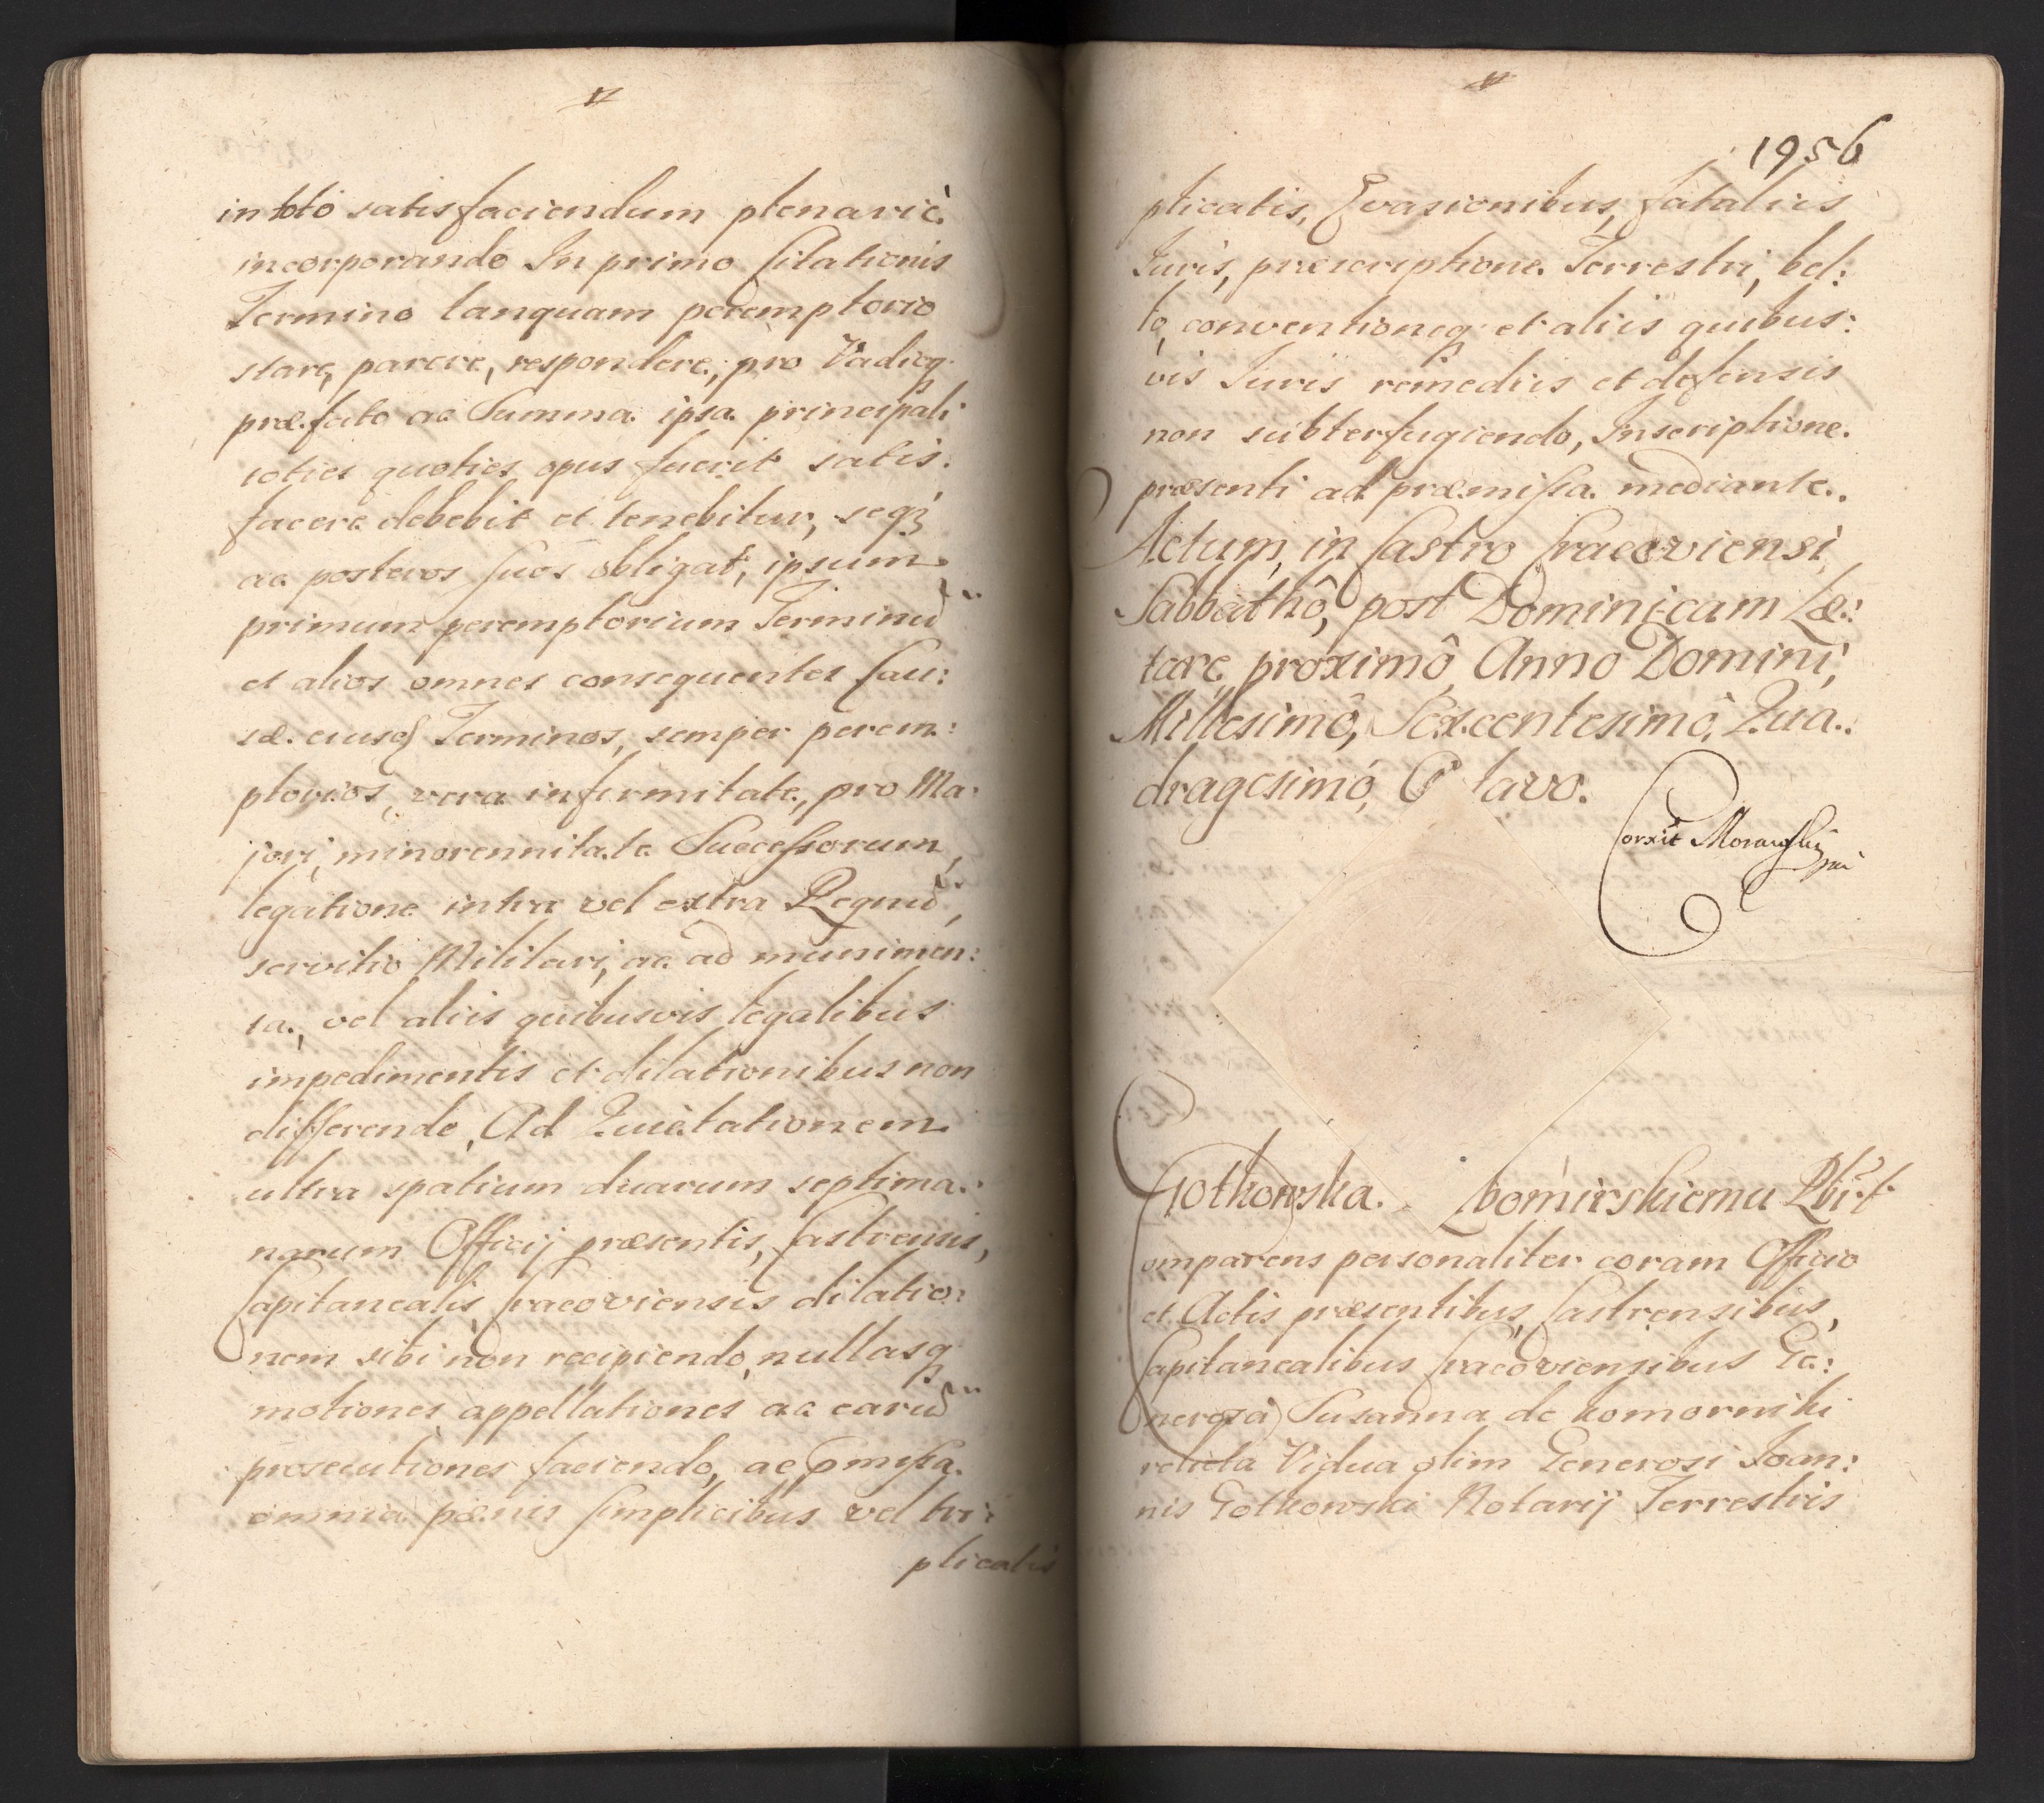 in toto satisfaciendum plenariè
incorporando In primo Citationis
Termino tanquam peremptorio
stare, parere, respondere, pro Vadioq
præfato ac Summa ipsa principali
toties quoties opus fuerit satis:
facere debebit et tenebitur, seq3
ac posteros suos obligat, ipsum
primum peremptorium Terminũ
et alios omnes consequentes Cau:
sæ eiusq Terminos, semper perem:
ptorios, vera infirmitate, pro Ma:
jori, minorennitate Successorum,
legatione intra vel extra Regnũ,
servitio Militari, ac ad munimen:
ta, vel aliis quibusvis legalibus
impedimentis et dilationibus non
differendo, Ad Quietationem
ultra spatium duarum septima:
narum Officij præsentis, Castrensis,
Capitanealis, Cracoviensis dilatio:
nem sibi non recipiendo, nullasq
motiones appellationes ac earũ
prosecutiones faciendo, ac pmissa
omnia pænis simplicibus vel tri:
plicatis
1956
plicatis, Evasionibus, fataliis
Iuris, præscriptione Terrestri, bel:
lo, conventioneq et aliis quibus:
vis Iuris remediis et defensis
non subterfugiendo, Inscriptione
præsenti ad præmissa mediante.
Actum in Castro Cracoviensi,
Sabbathô, post Dominicam Læ:
tare, proximô, Anno Domini,
Millesimô, Sexcentesimô, Qua:
dragesimô, Octavo.
Corxit Morawski
mp
Gotkowska Lbomirskiemu Rbit
Comparens personaliter coram Officio
et Actis præsentibus, Castrensibus,
Capitanealibus Cracoviensibus Ge:
nerosa Susanna de Komorniki
relicta Vidua olim Generosi Ioan:
nis Gotkowski Notarij Terrestris